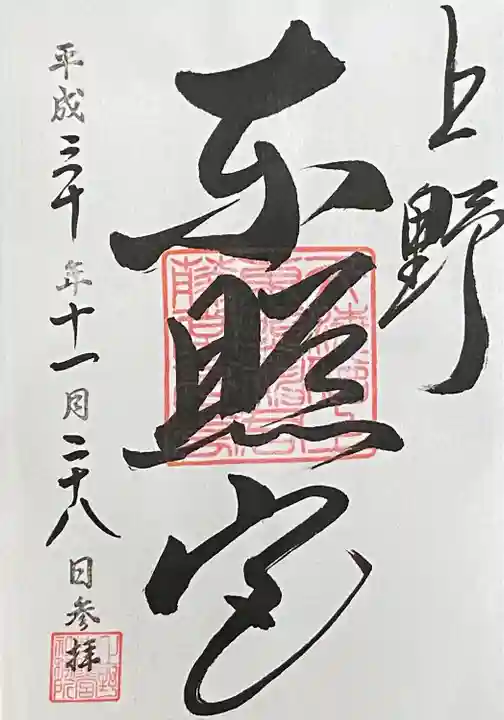 上野
東照宮
平成三十年十一月二十八日参拝